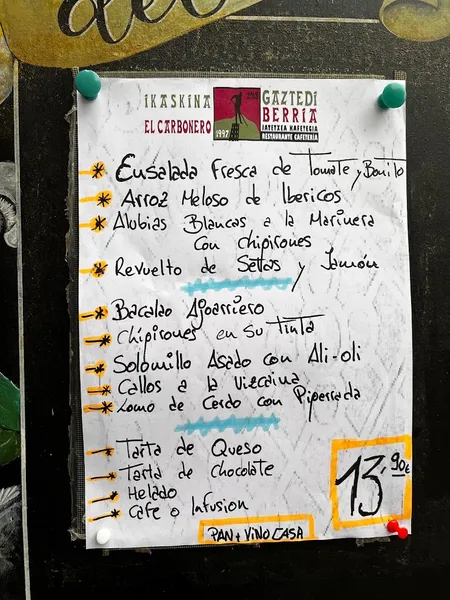 del
IKASKINA
EL CARBONERO
1997
GAZTEDI
BERRIA
JATETXEA KAFETEGIA
RESTAURANTE CAFETERIA
Ensalada Fresca de Tomate y Bonito
Arroz Meloso de Ibericos
Alubias Blancas a la Marinera
con chipirones
Revuelto de Setas y Jamón
Bacalao Ajoarriero
chipirones en su Tinta
Solomillo Asado con Ali-oli
Callos a la Vizcaina
Lomo de Cerdo con Piperrada
Tarta de Queso
Tarta de Chocolate
Helado
Cafe o Infusion
13'90€
PAN + VINO CASA